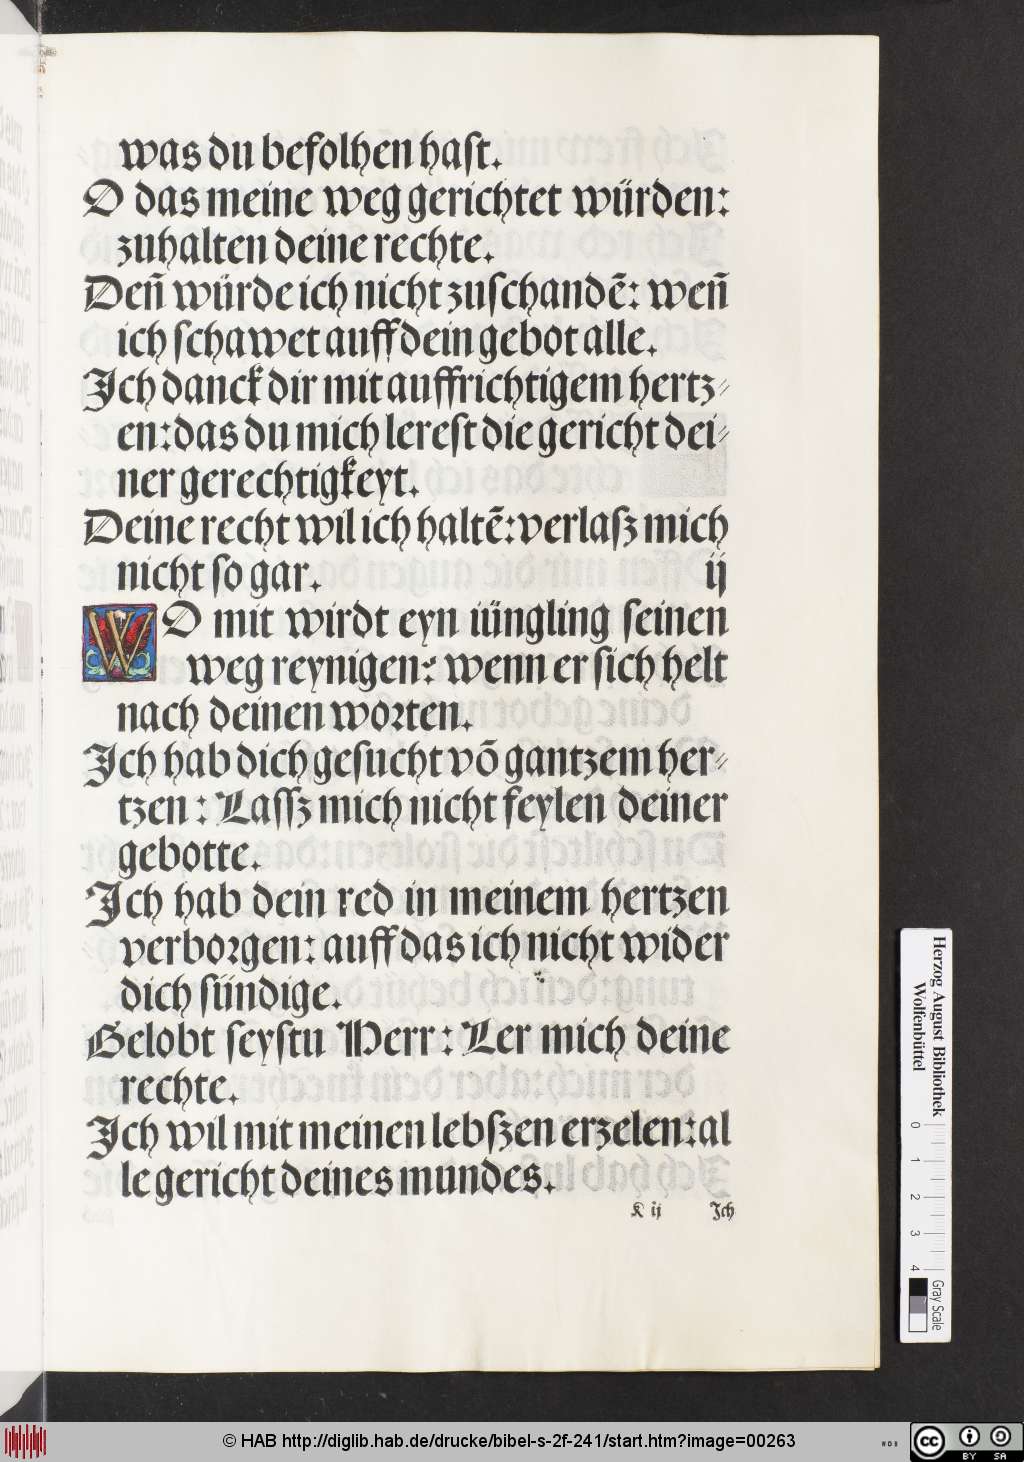 was du befolhen haſt.
O das meine weg gerichtet würden:
zuhalten deine rechte.
Deñ würde ich nicht zuſchandẽ: weñ
ich ſchawet auff dein gebot alle.
Ich danck dir mit auffrichtigem hertz⸗
en: das du mich lereſt die gericht dei⸗
ner gerechtigkeyt.
Deine recht wil ich haltẽ: verlaſz mich
nicht ſo gar. ij
WO mit wirdt eyn iüngling ſeinen
weg reynigen: wenn er ſich helt
nach deinen woꝛten.
Ich hab dich geſucht võ gantzem her⸗
tzen: Laſſz mich nicht feylen deiner
gebotte.
Ich hab dein red in meinem hertzen
verboꝛgen: auff das ich nicht wider
dich ſündige.
Gelobt ſeyſtu Herr: Ler mich deine
rechte.
Ich wil mit meinen lebſzen erzelen: al
le gericht deines mundes.
K ij Ich
Herzog August Bibliothek
Wolfenbüttel
0 1 2 3 4
Gray Scale
© HAB http://diglib.hab.de/drucke/bibel-s-2f-241/start.htm?image=00263
WDB
cc BY SA